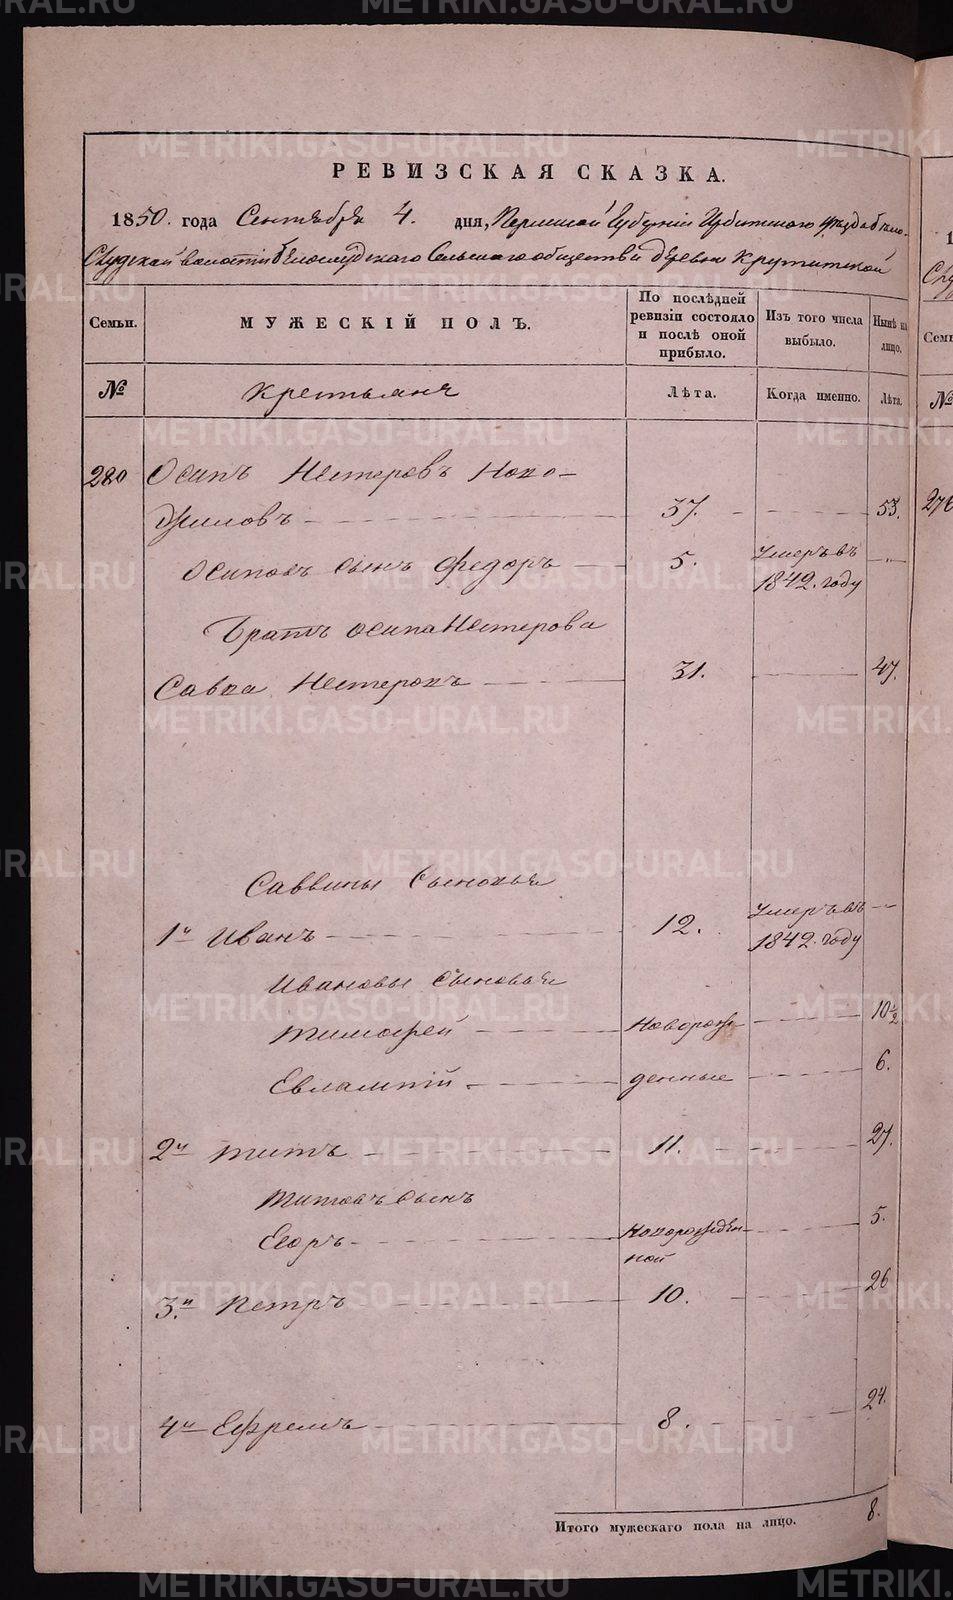 РЕВИЗСКАЯ СКАЗКА.
1850. года Сентября 4. дня, Пермской Губернии Ирбитскаго уезда бело-
Слудской волости белослудскаго Сельскаго общества деревни Крутихской
Семьи.
МУЖЕСКІЙ ПОЛЪ.
По послѣдней ревизіи состояло и послѣ оной прибыло.
Изъ того числа выбыло.
Нынѣ на лицо.
№
Крестьянъ
Лѣта.
Когда именно.
Лѣта.
280 Осипъ Нестеровъ Ново-
37. 53.
Осиповъ сынъ Федоръ 5. Умеръ въ 1842. году
Братъ Осипа Нестерова
Савва Нестеровъ 31. 47.
Саввины Сыновья
1й Иванъ 12. Умеръ въ 1842. году
Ивановы Сыновья
Тимофей Новорож- 10½
Евлампій денные 6.
2й Титъ 11. 27.
Титовъ сынъ
Егоръ Новорожден-ной 5.
3й Петръ 10. 26
4й Ефремъ 8. 24.
Итого мужескаго пола на лицо. 8.
276
METRIKI.GASO-URAL.RU